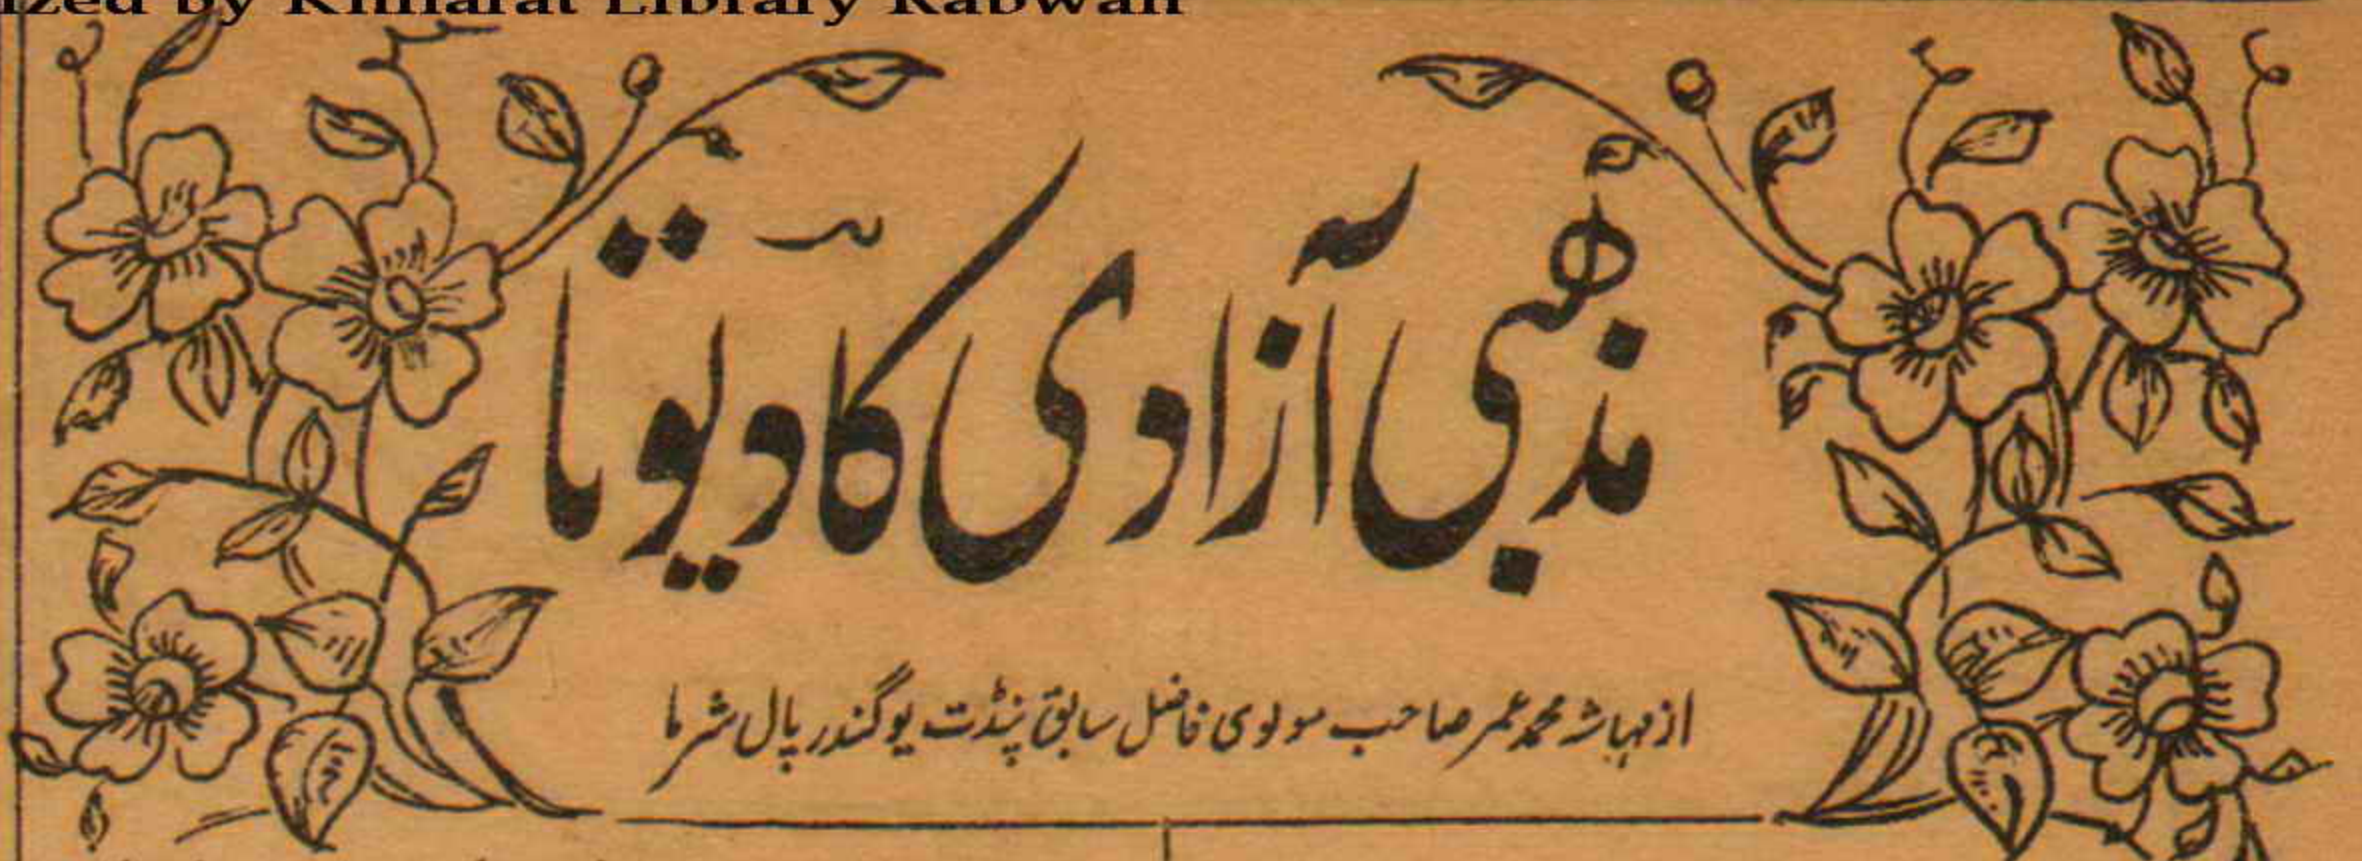 ized by Khilafat Library Rabwah
مذہبی آزادی کا دیوتا
از مہاشہ محمد عمر صاحب مولوی فاضل سابق پنڈت یوگندر پال شرما